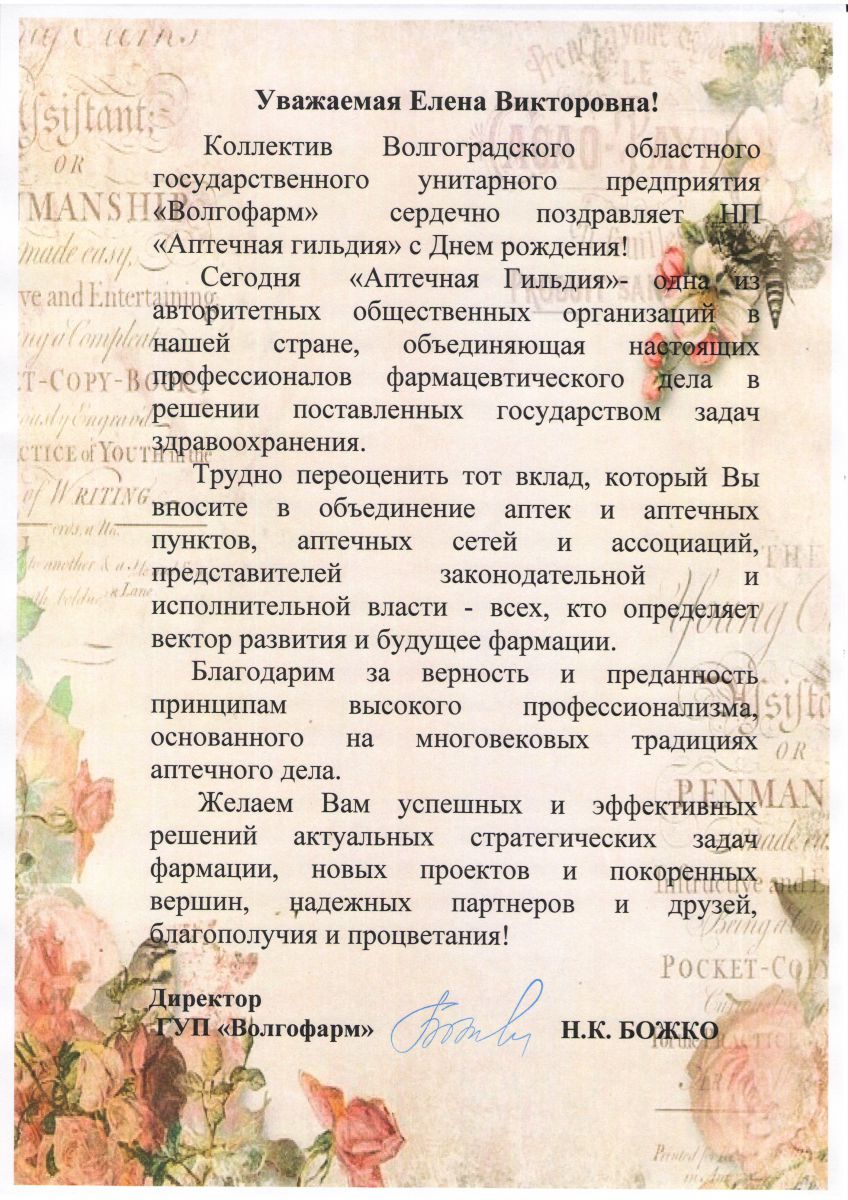 Уважаемая Елена Викторовна!
Коллектив Волгоградского областного
государственного унитарного предприятия
«Волгофарм» сердечно поздравляет НП
«Аптечная гильдия» с Днем рождения!
Сегодня «Аптечная Гильдия»- одна из
авторитетных общественных организаций в
нашей стране, объединяющая настоящих
профессионалов фармацевтического дела в
решении поставленных государством задач
здравоохранения.
Трудно переоценить тот вклад, который Вы
вносите в объединение аптек и аптечных
пунктов, аптечных сетей и ассоциаций,
представителей законодательной и
исполнительной власти - всех, кто определяет
вектор развития и будущее фармации.
Благодарим за верность и преданность
принципам высокого профессионализма,
основанного на многовековых традициях
аптечного дела.
Желаем Вам успешных и эффективных
решений актуальных стратегических задач
фармации, новых проектов и покоренных
вершин, надежных партнеров и друзей,
благополучия и процветания!
Директор
ГУП «Волгофарм» Н.К. БОЖКО